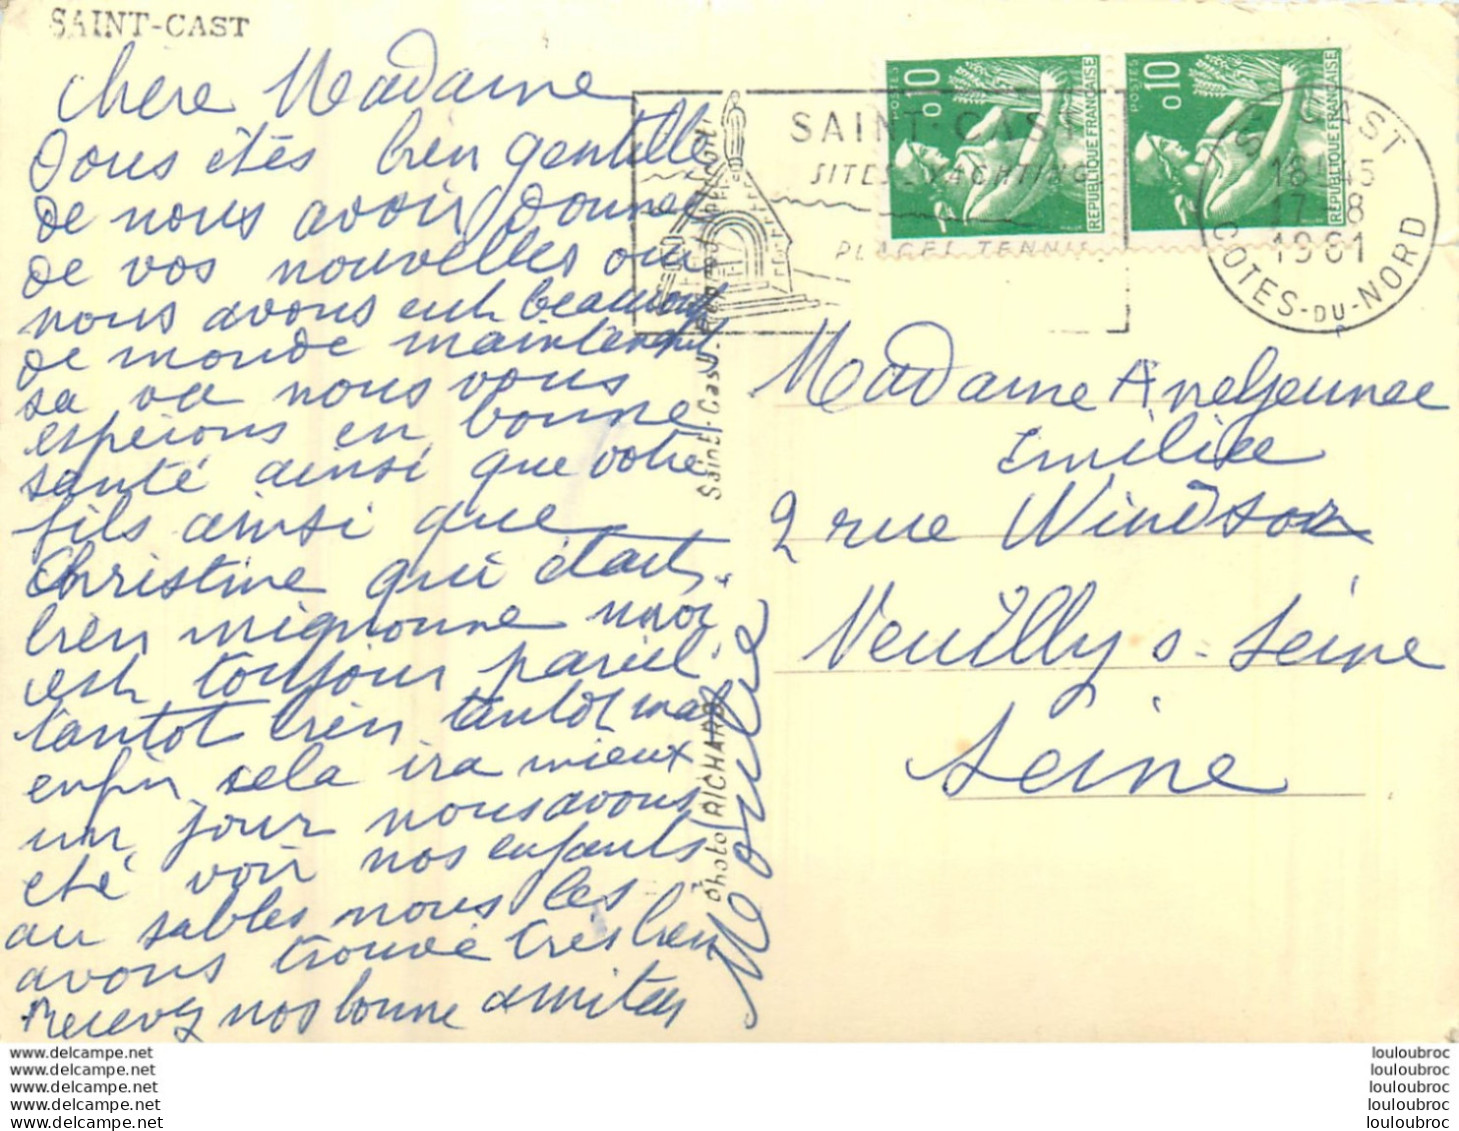 SAINT-CAST
Chere Madame
Vous étés bien gentille
de nous avoir donner
de vos nouvelles oui
nous avons eut beaucoup
de monde maintenant
sa va nous vous
espérons en bonne
santé ainsi que votre
fils ainsi que
Christine qui était
bien mignonne moi
est toujour pareil
tantot bien tantot mal
enfin sela ira mieux
un jour nous avons
eté voir nos enfants
au sables nous les
avons trouvé très bien
recevez nos bonne amitiés
Saint-Cast
Photo RICHARD
SAINT-CAST
SITES YACHTING
PLAGES TENNIS
POSTES
0,10
REPUBLIQUE FRANÇAISE
POSTES
0,10
REPUBLIQUE FRANÇAISE
ST CAST
18 H 45
17-8
1961
COTES-DU-NORD
Madame Andjeunee
Emilie
2 rue Windsor
Neuilly s-Seine
Seine
www.delcampe.net
www.delcampe.net
www.delcampe.net
www.delcampe.net
www.delcampe.net
louloubroc
louloubroc
louloubroc
louloubroc
louloubroc